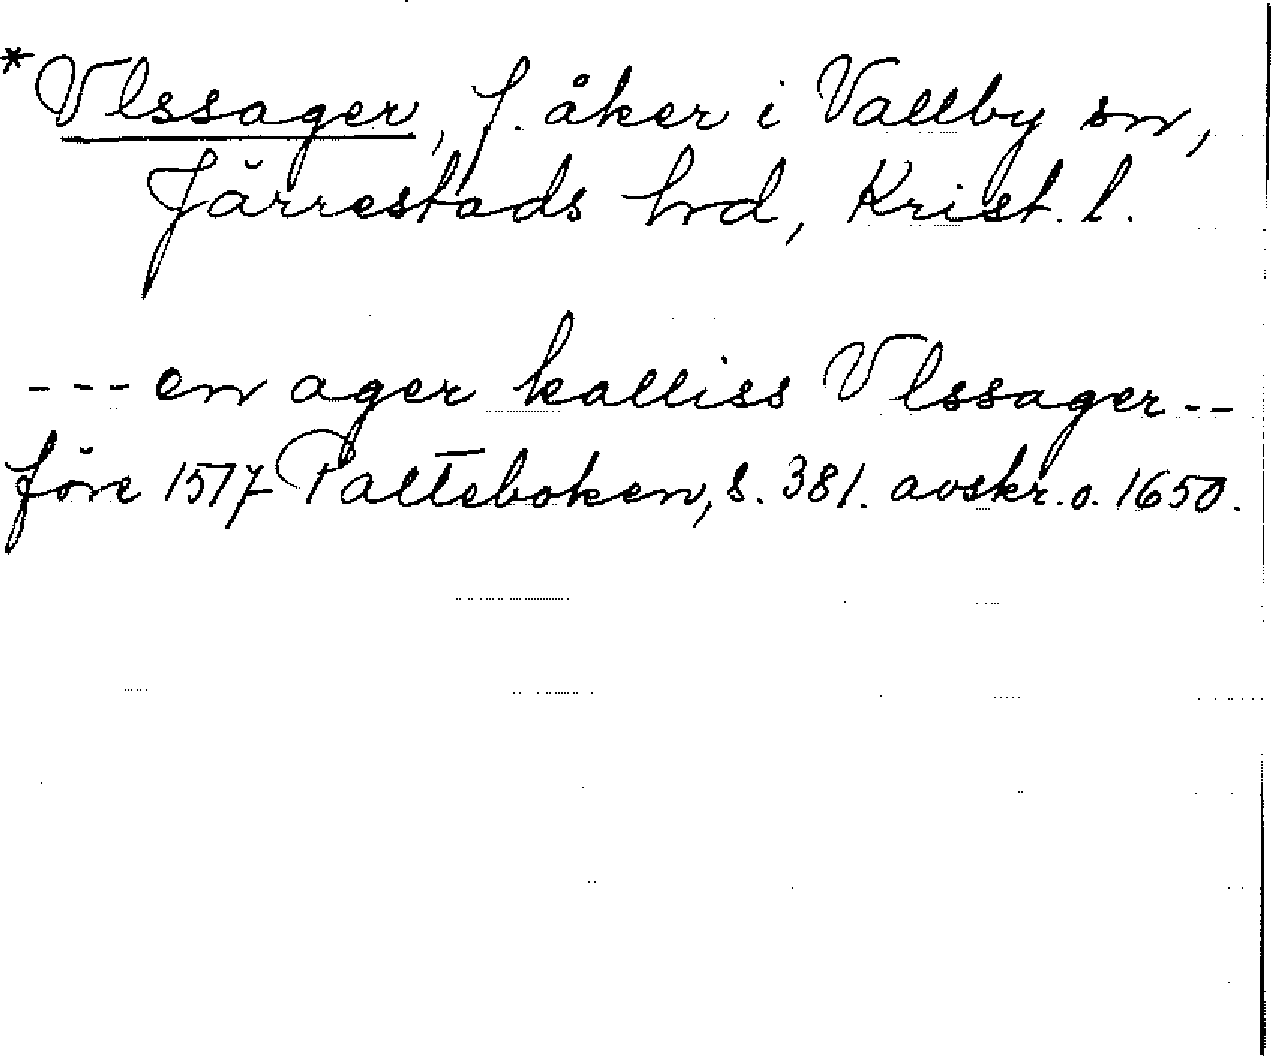 *Vlssager, f. åker i Vallby sn,
Järrestads hrd, Krist. l.
--- en ager kalliss Vlssager --
före 1517 Palteboken, s. 381. avskr. o. 1650.